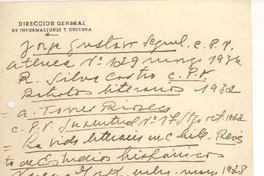 DIRECCION GENERAL
DE INFORMACIONES Y CULTURA
Jorge Gustavo c. P. N.
Atenea Nº 129 marzo 1936
R. Silva Castro c. P. N.
Retratos literarios 1932
A. Torres Rioseco
c. P. N. Juventud Nº 17
La vida literaria en Chile. Revis
ta de Estudios hispánicos
marzo 1928